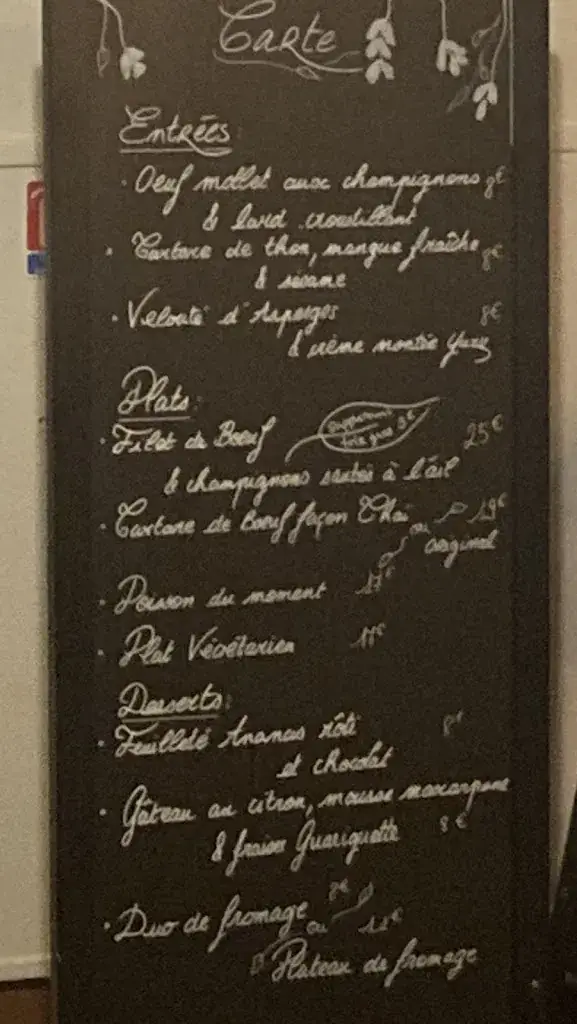 Carte
Entrées:
· Oeuf mollet aux champignons 9€
& lard croustillant
· Tartare de thon, mangue fraîche 9€
& sésame
· Velouté d'Asperges 8€
& crème montée Yuzu
Plats:
· Filet de Boeuf supplément foie gras 3€ 25€
& champignons sautés à l'ail
· Tartare de boeuf façon Thaï ou 19€
original
· Poisson du moment 17€
· Plat Végétarien 17€
Desserts:
· Feuilleté Ananas rôti 8€
et chocolat
· Gâteau au citron, mousse mascarpone
& fraises Guariguette 8€
· Duo de fromage 8€ ou 12€
Plateau de fromage